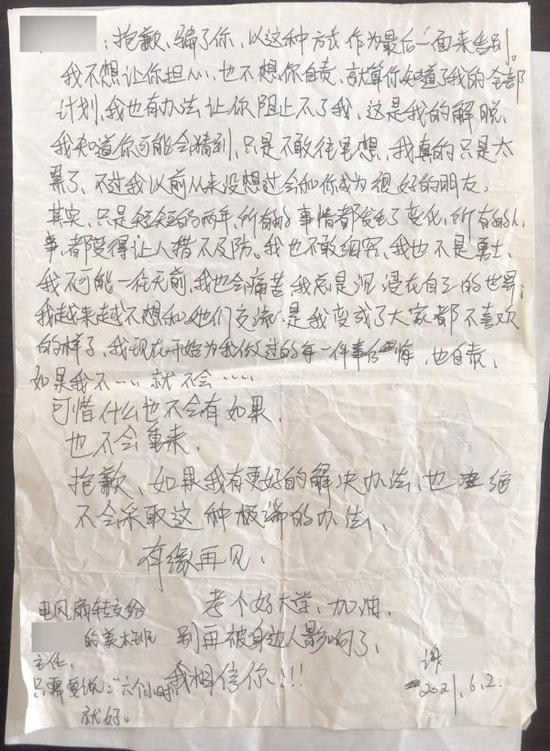 ：抱歉，骗了你，以这种方式作为最后一面来告别。
我不想让你担心，也不想你自责，就算你知道了我的全部
计划，我也有办法让你阻止不了我，这是我的解脱，
我知道你可能会猜到，只是不敢往里想，我真的只是太
累了，不过我以前从来没想过会和你成为很好的朋友，
其实，只是短短的两年，所有的事情都发生了变化，所有的人，
事，都变得让人措不及防。我也不敢细究，我也不是勇士，
我不可能一往无前，我也会痛苦，我总是沉浸在自己的世界；
我越来越不想和她们交流，是我变成了大家都不喜欢
的样子，我现在开始为我做过的每一件事后悔，也自责，
如果我不……就不会……
可惜什么也不会有如果，
也不会重来，
抱歉，如果我有更好的解决办法，也
不会采取这种极端的办法、
有缘再见，
考个好大学，加油，
别再被身边人影响了，
我相信你！！！
电风扇转交给
的美术班
主任，
只需要 六个小时
就好。
2021.6.2.